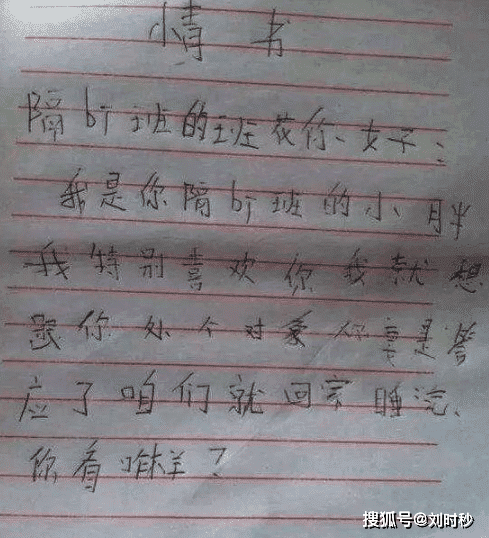 情书
隔bì班的班花你女子：
我是你隔bì班的小月半
我特别喜欢你我就想
跟你处个对象你要是答
应了咱们就回家睡
你看咋样？
搜狐号@刘时秒